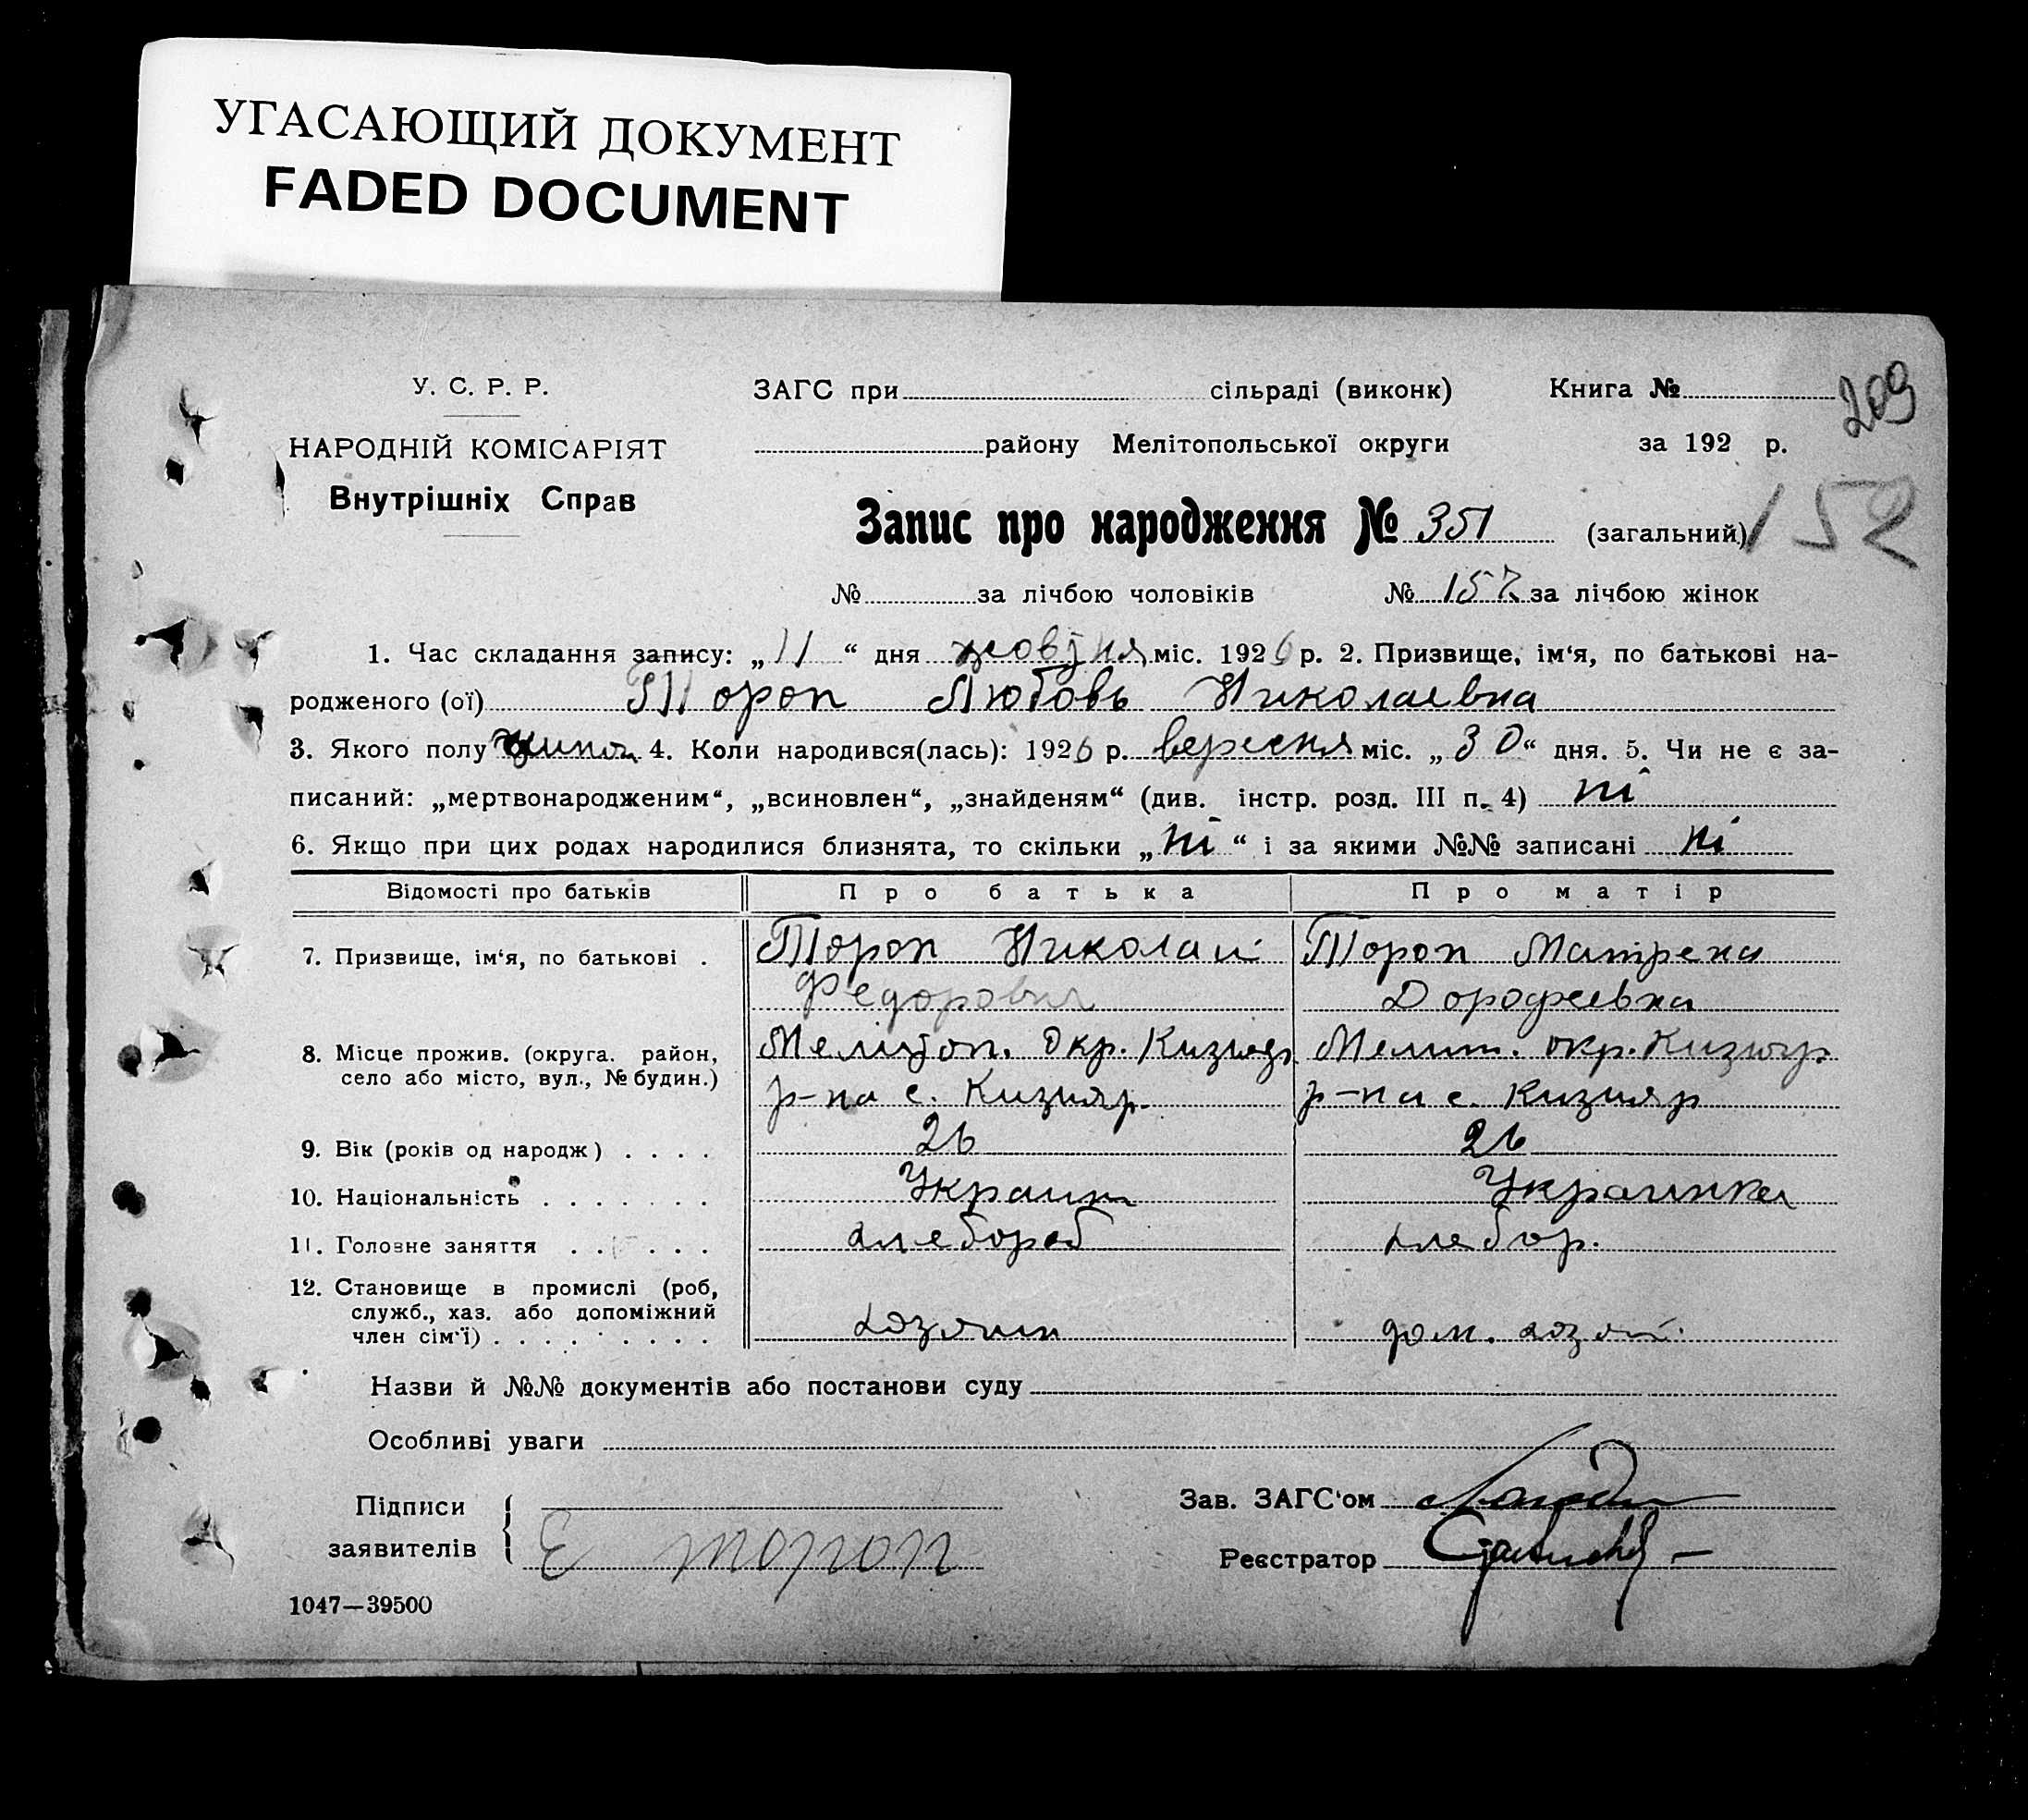 УГАСАЮЩИЙ ДОКУМЕНТ
FADED DOCUMENT
У. С. Р. Р.
НАРОДНІЙ КОМІСАРІЯТ
Внутрішніх Справ
ЗАГС при сільраді (виконк)
району Мелітопольської округи
Книга №
за 192 р.
209
152
Запис про народження № 351 (загальний)
№ за лічбою чоловіків № 152 за лічбою жінок
1. Час складання запису: „11“ дня жовтня міс. 1926 р. 2. Призвище, ім‘я, по батькові на-
родженого (ої) Тороп Любовь Николаевна
3. Якого полу 4. Коли народився(лась): 1926 р. вересня міс. „30“ дня. 5. Чи не є за-
писаний: „мертвонародженим“, „всиновлен“, „знайденям“ (див. інстр. розд. III п. 4) ні
6. Якщо при цих родах народилися близнята, то скільки „ні“ і за якими №№ записані ні
Відомості про батьків Про батька Про матір
7. Призвище, ім‘я, по батькові . Тороп Николай Тороп Матрена
Федорович Дорофеевна
8. Місце прожив. (округа. район, Мелітоп. Окр. Кизияр Мелит. окр. Кизияр
село або місто, вул., № будин.) р-на с. Кизияр. р-на с. Кизияр
9. Вік (років од народж) . . . . 26 26
10. Національність . . . . . . . Украин Украинка
11. Головне заняття . . . . . . хлебороб хлебор.
12. Становище в промислі (роб,
служб., хаз. або допоміжний
член сім‘ї) . . . . . . . . . хозяин дом. хозяй.
Назви й №№ документів або постанови суду
Особливі уваги
Підписи
заявителів Е Тороп
Зав. ЗАГС‘ом
Реєстратор
1047—39500